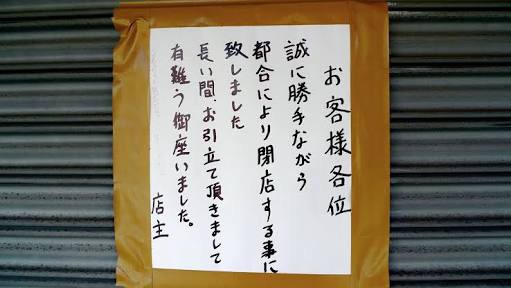 お客様各位
誠に勝手ながら
都合により閉店する事に
致しました
長い間、お引立て頂きまして
有難う御座いました。
店主